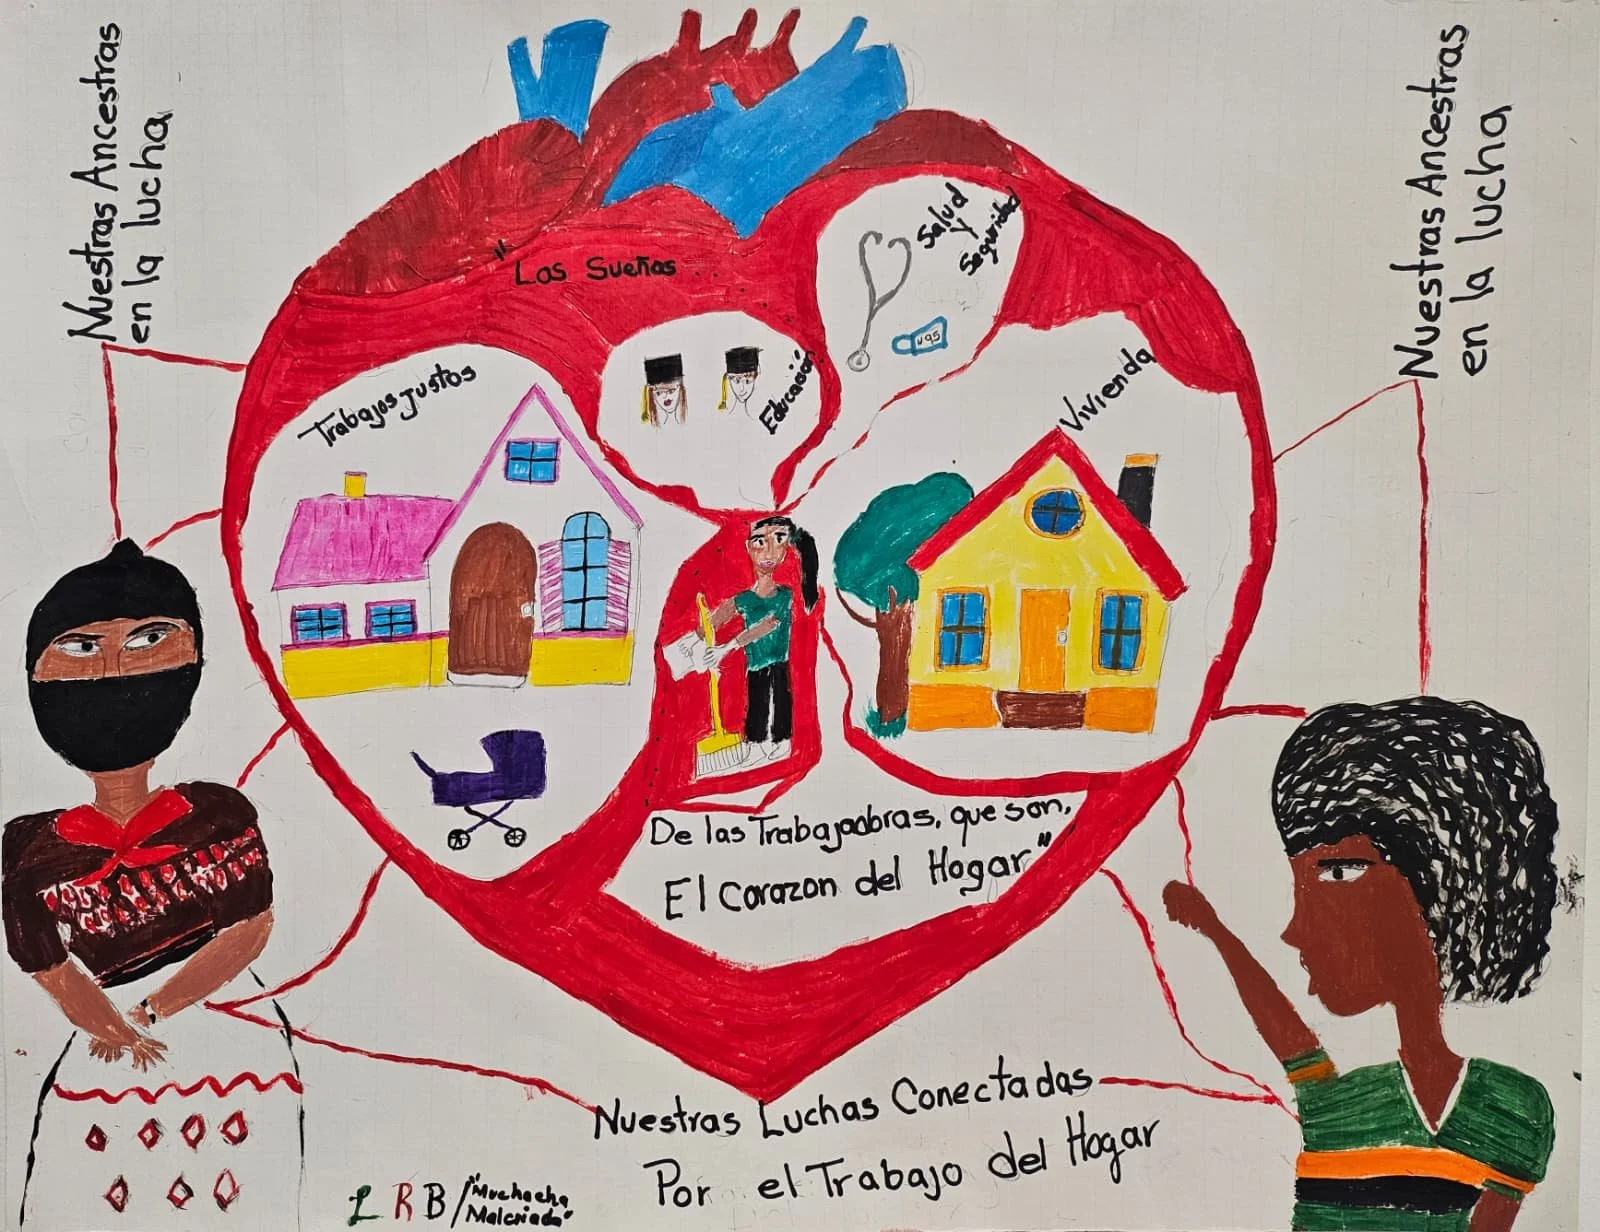 Nuestras Ancestras
en la lucha
Nuestras Ancestras
en la lucha
"Los Sueños...
Salud
y
Seguridad
Educación
Trabajos justos
Vivienda
De las Trabajadoras, que son,
El Corazon del Hogar"
Nuestras Luchas Conectadas
Por el Trabajo del Hogar
LRB/"Muchacha
Malcriada"